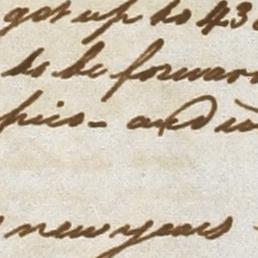 got up to 43
to be forwar
pico - and
new years